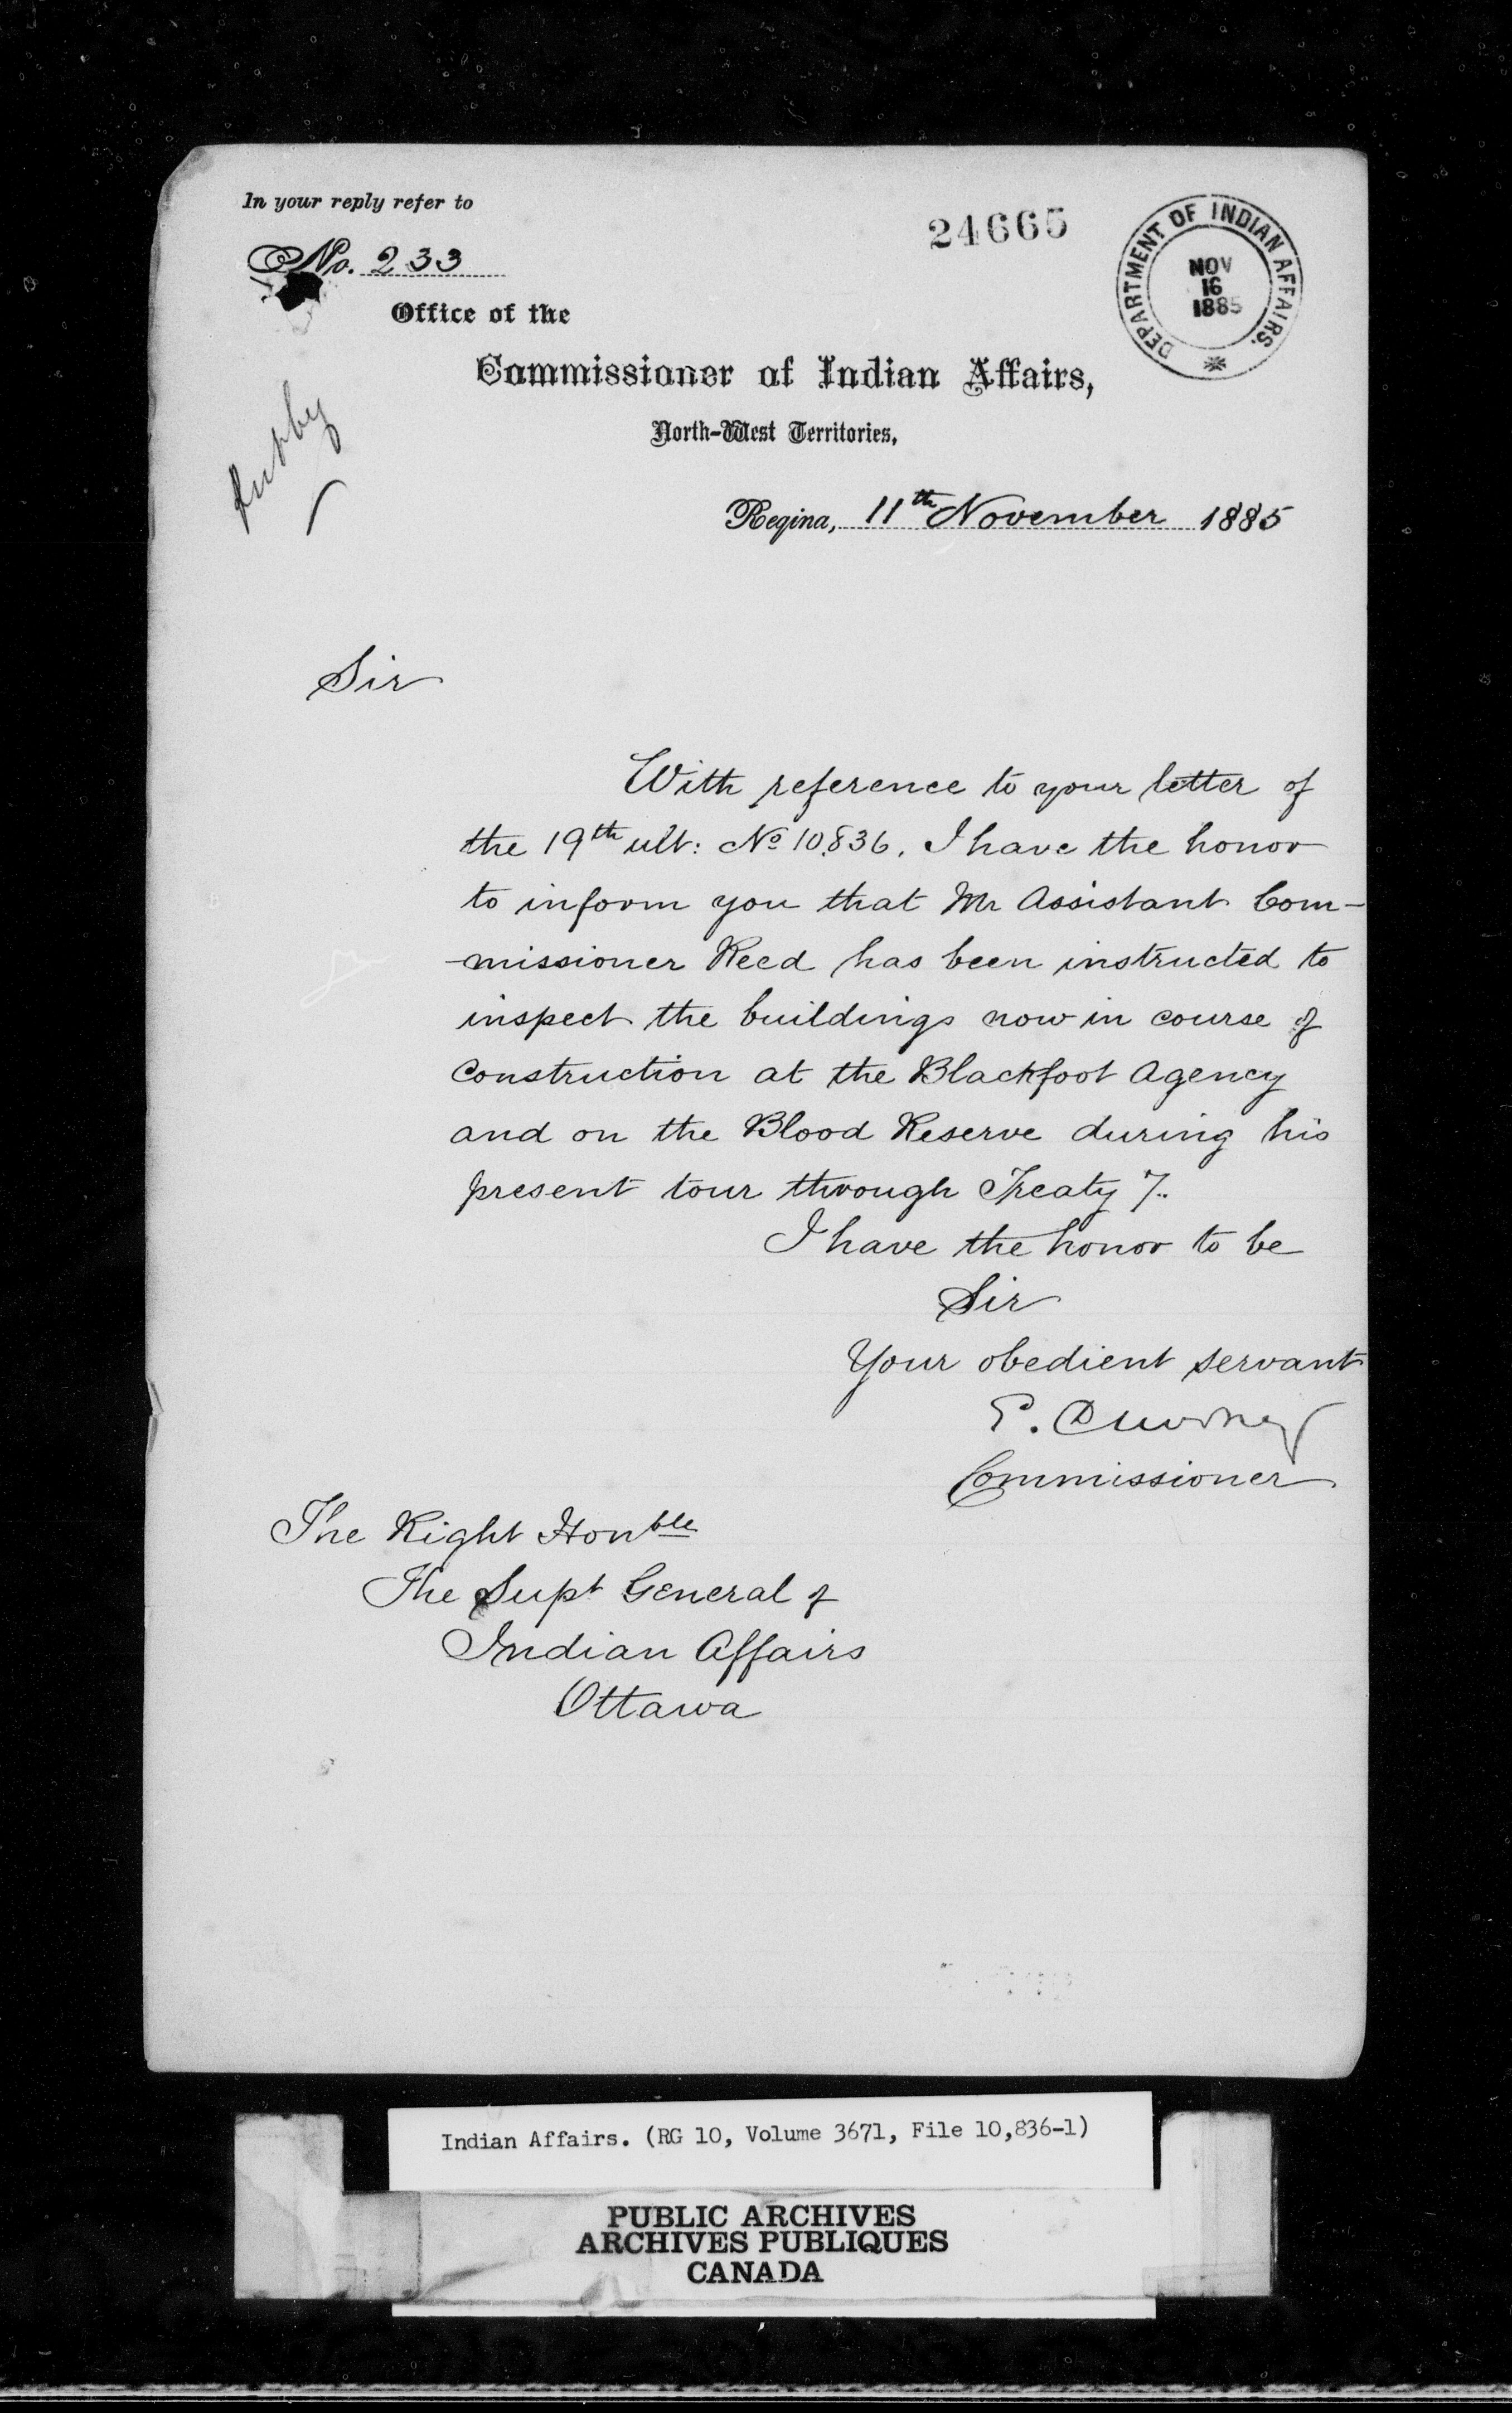 In your reply refer to
No. 233
24665
DEPARTMENT OF INDIAN AFFAIRS.
NOV
16
1885
Office of the
Commissioner of Indian Affairs,
North-West Territories,
Regina, 11th November 1885
Sir
With reference to your letter of
the 19th ult: No 10,836. I have the honor
to inform you that Mr Assistant Com-
-missioner Reed has been instructed to
inspect the buildings now in course of
Construction at the Blackfoot Agency
and on the Blood Reserve during his
present tour through Treaty 7.
I have the honor to be
Sir
Your obedient servant
E. Dewdney
Commissioner
The Right Honble
The Supt General of
Indian Affairs
Ottawa
Indian Affairs. (RG 10, Volume 3671, File 10,836-1)
PUBLIC ARCHIVES
ARCHIVES PUBLIQUES
CANADA